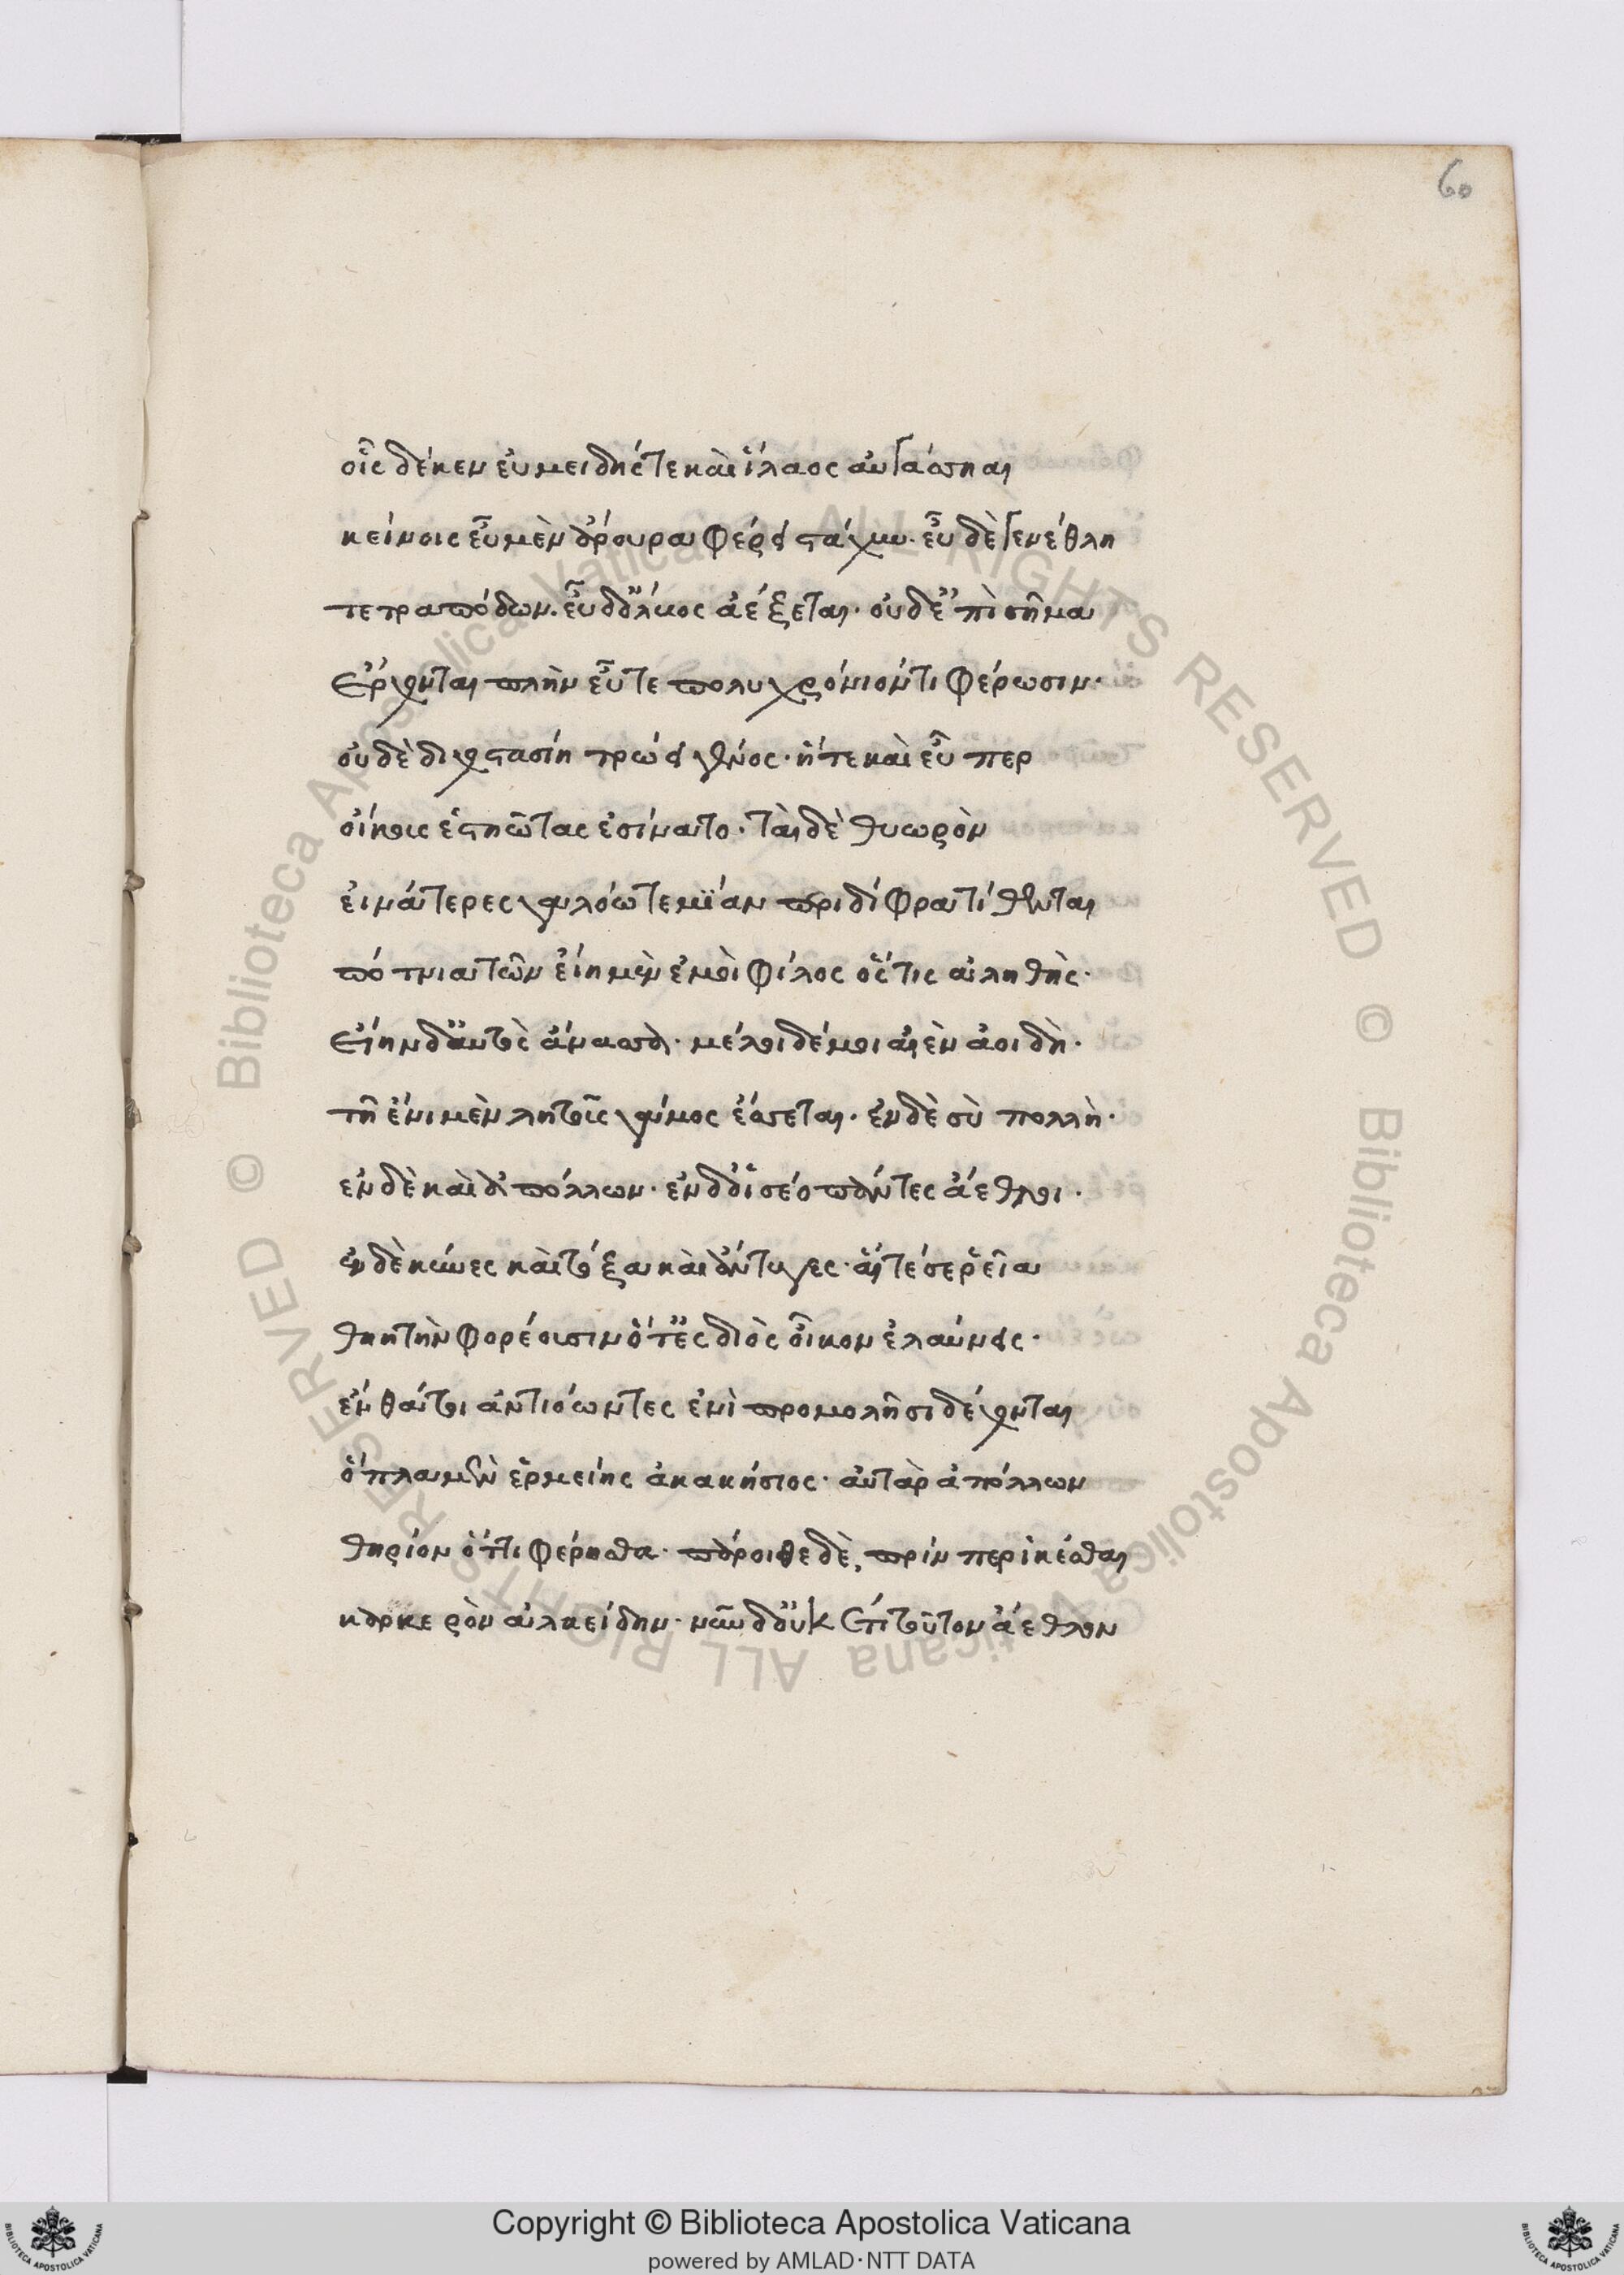 60
οἷς δέ κεν εὐμειδής τε καὶ ἵλαος αὐγάσηαι
κείνοις εὖ μὲν ἄρουρα φέρει στάχυν· εὖ δὲ γενέθλη
τετραπόδων· εὖ δ' ὄλβος ἀέξεται· οὐδ' ἐπὶ σῆμα
ἔρχονται πλὴν εὖτε πολυχρόνιόν τι φέρωσιν·
οὐδὲ διχοστασίη τρώει γένος· ἥτε καὶ εὖ περ
οἴκοις ἑστηῶτας ἐσίνατο· ταὶ δὲ θυωρὸν
εἰνάτερες γαλόῳ τε μίαν περὶ δίφρα τίθενται
πότνια τῶν εἴη μὲν ἐμοὶ φίλος ὅστις ἀληθής·
εἴην δ' αὐτὸς ἄνασσα· μέλοι δέ μοι αἰὲν ἀοιδή·
τῇ ἔνι μὲν λητοῦς γάμος ἔσσεται· ἐν δὲ σὺ πολλή·
ἐν δὲ καὶ ἀπόλλων· ἐν δ' οἵ σέο πάντες ἄεθλοι·
ἐν δὲ κύνες καὶ τόξα καὶ ἄντυγες· αἵτε σε ῥεῖα
θηητὴν φορέουσιν ὅτ' ἐς διὸς οἶκον ἐλαύνεις·
ἔνθά τοι ἀντιόωντες ἐνὶ προμολῇσι δέχονται
ὅπλα μὲν ἑρμείης ἀκακήσιος· αὐτὰρ ἀπόλλων
θηρίον ὅττι φέρησθα· πάροιθε δὲ, πρίν περ ἱκέσθαι
καρτερὸν ἀλκείδην· νῦν δ' οὐκέτι τοῦτον ἄεθλον
Copyright © Biblioteca Apostolica Vaticana
powered by AMLAD·NTT DATA